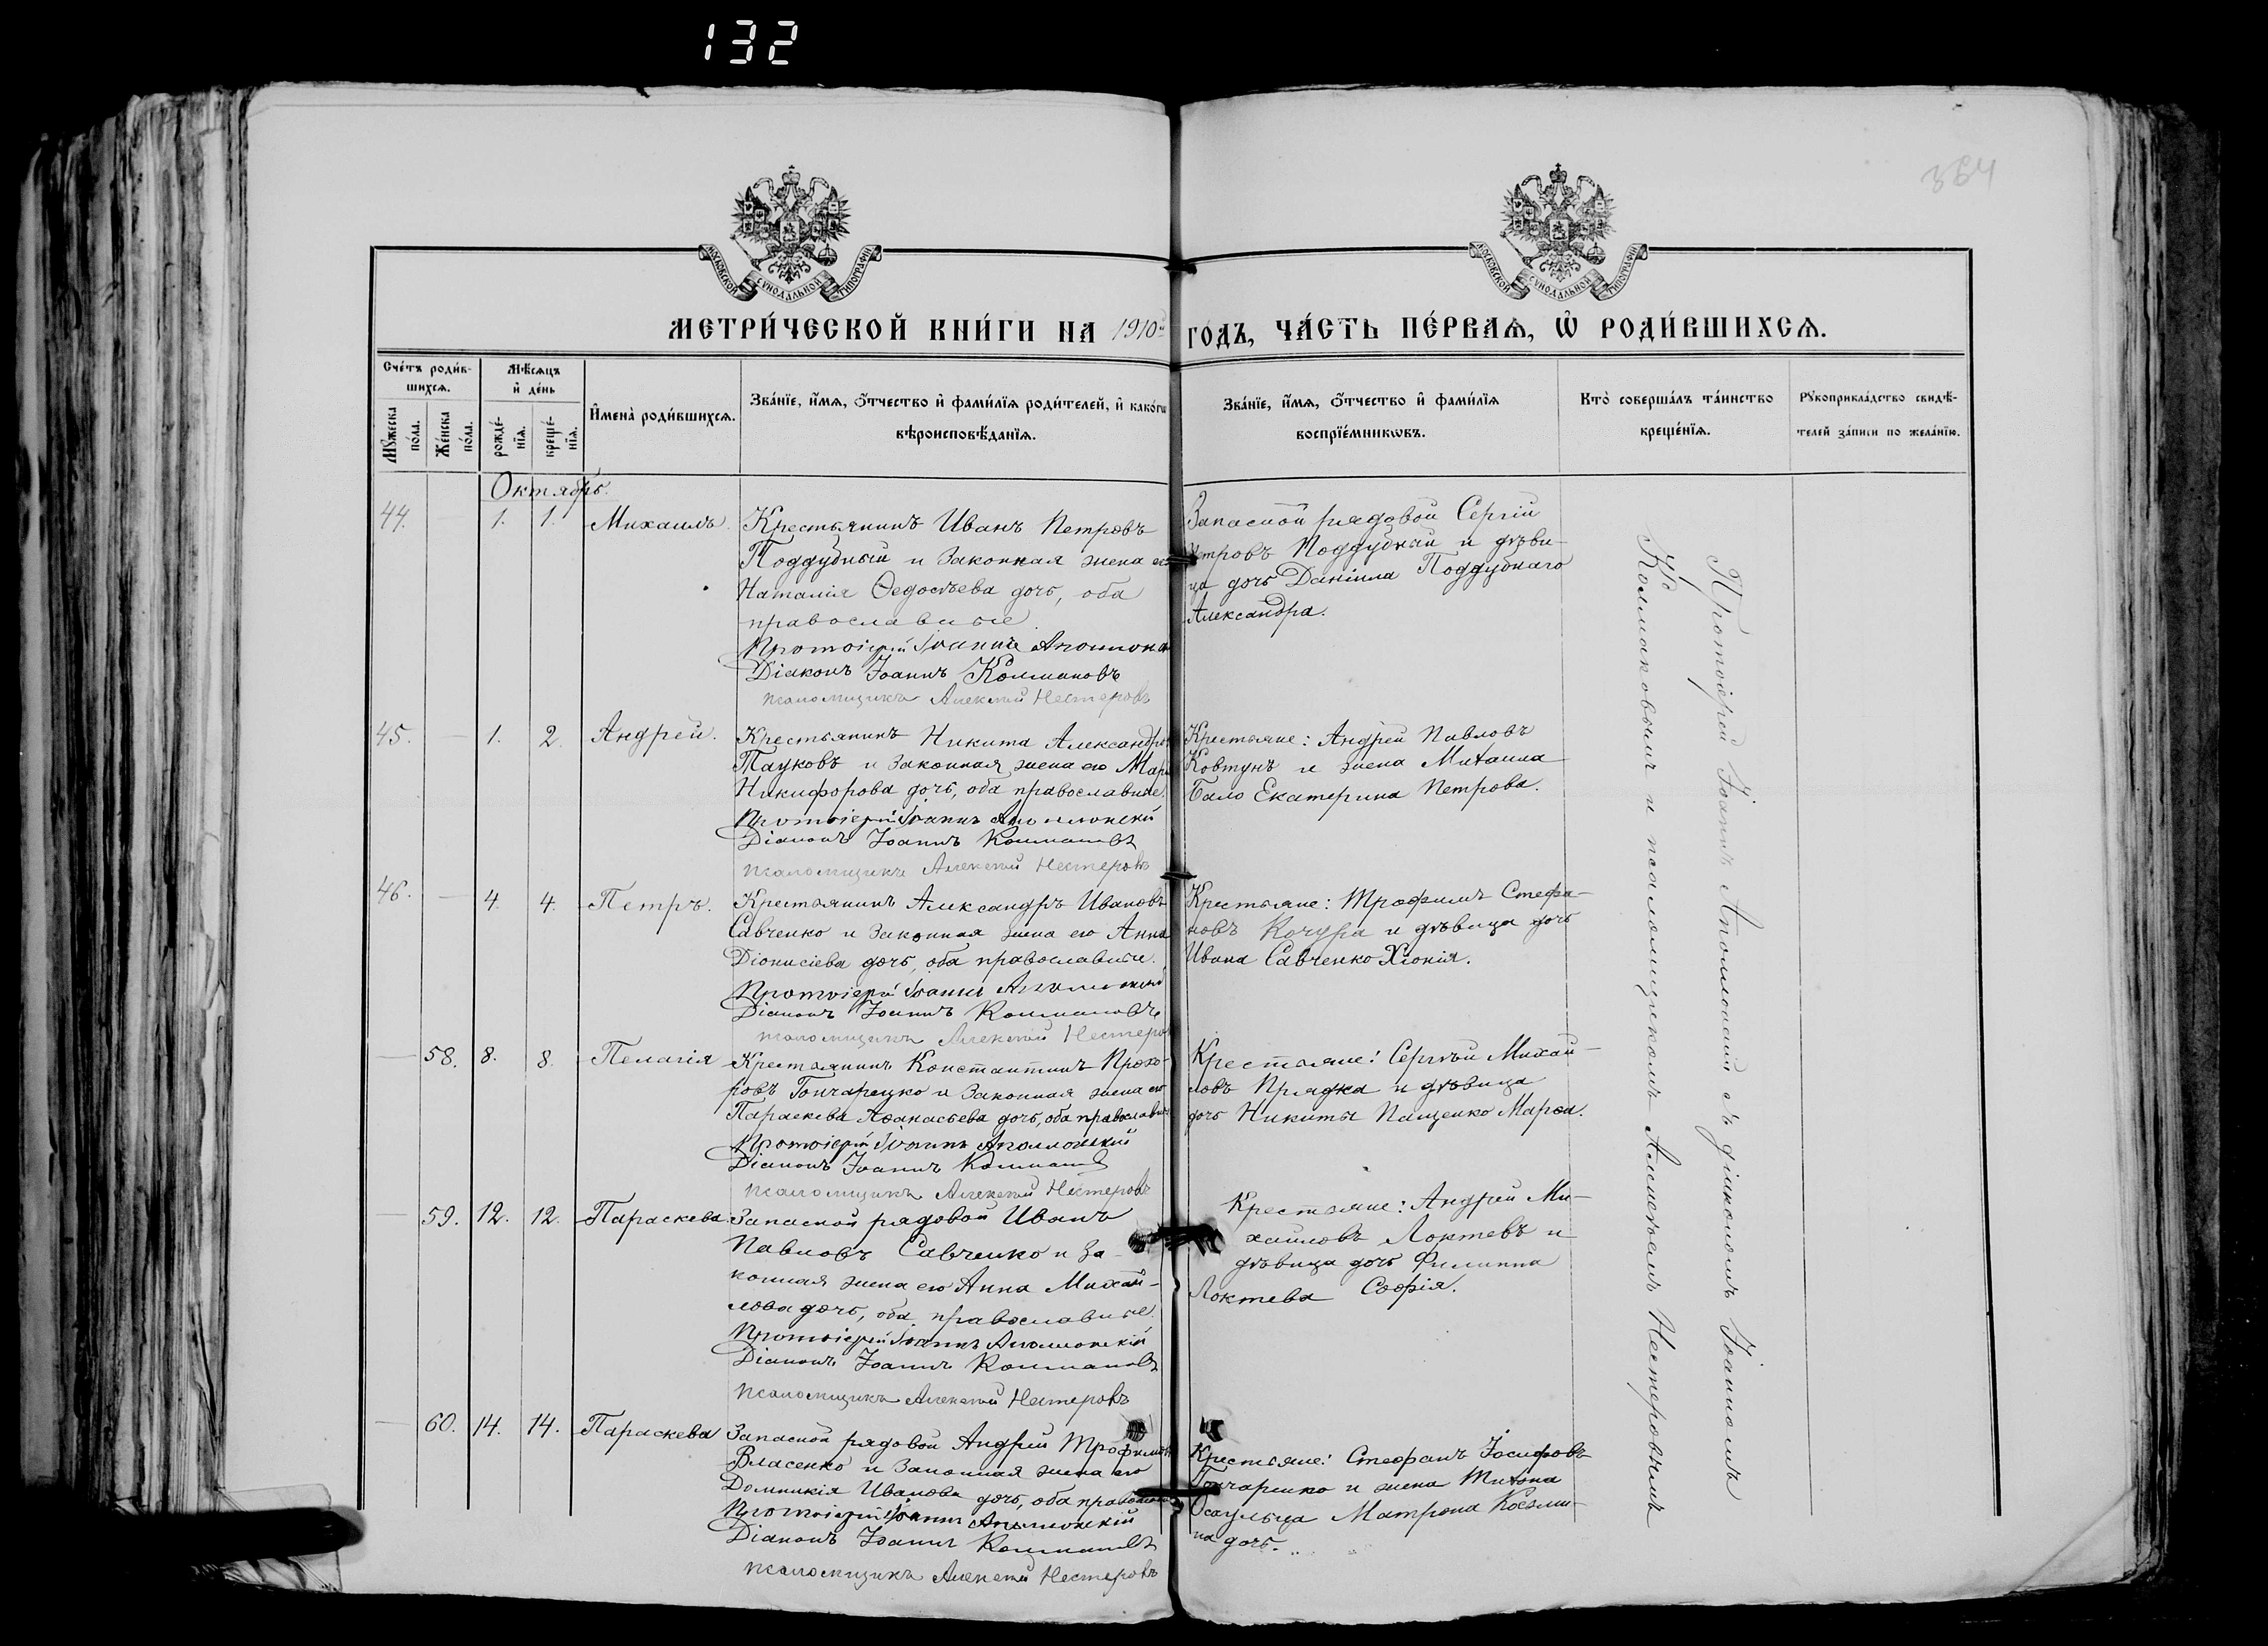 132
364
МОСКОВСКОЙ СУНОДАЛЬНОЙ ТИПОГРАФІИ
МОСКОВСКОЙ СУНОДАЛЬНОЙ ТИПОГРАФІИ
МЕТРИ́ЧЕСКОЙ КНИ́ГИ НА 1910й ГО́ДЪ, ЧА́СТЬ ПЕ́РВАѦ, Ѡ҆ РОДИ́ВШИХСѦ.
Сче́тъ роди́в-
шихсѧ.
Мꙋ́жеска по́ла.
Же́нска по́ла.
Мѣ́сѧцъ
и҆ де́нь
рожде́-
нїѧ.
креще́-
нїѧ.
И҆мена̀ роди́вшихсѧ.
Зва́нїе, и҆́мѧ, ѻ҆́тчество и҆ фами́лїѧ роди́телей, и҆ како́гѡ
вѣроисповѣ́данїѧ.
Зва́нїе, и҆́мѧ, ѻ҆́тчество и҆ фами́лїѧ
воспрїе́мникѡвъ.
Кто̀ соверша́лъ та́инство
креще́нїѧ.
Рꙋкоприкла́дство свидѣ́-
телей за́писи по жела́нїю.
Октябрь.
44. — 1. 1. Михаилъ.
Крестьянинъ Иванъ Петровъ
Поддубный и законная жена его
Наталія Ѳедосѣева дочь, оба
православные.
Протоіерей Іоаннъ Аполлонск
Діаконъ Іоаннъ Колмаковъ
псаломщикъ Алексѣй Нестеровъ
Запасной рядовой Сергій
Петровъ Поддубный и дѣви-
ца дочь Даніила Поддубнаго
Александра.
45. — 1. 2. Андрей.
Крестьянинъ Никита Александров
Тауковъ и законная жена его Мари
Никифорова дочь, оба православные.
Протоіерей Іоаннъ Аполлонскій
Діаконъ Іоаннъ Колмаковъ
псаломщикъ Алексѣй Нестеровъ
Крестьяне: Андрей Павловъ
Ковтунъ и жена Михаила
Бало Екатерина Петрова.
46. — 4. 4. Петръ.
Крестьянинъ Александръ Ивановъ
Савченко и законная жена его Анна
Діонисіева дочь, оба православные.
Протоіерей Іоаннъ Аполлонскій
Діаконъ Іоаннъ Колмаковъ
псаломщикъ Алексѣй Нестеров
Крестьяне: Трофимъ Стефа-
новъ Кочура и дѣвица дочь
Ивана Савченко Хіонія.
— 58. 8. 8. Пелагія
Крестьянинъ Константинъ Прохо-
ровъ Гончаренко и законная жена его
Параскева Аѳанасьева дочь, оба православные
Протоіерей Іоаннъ Аполлонскій
Діаконъ Іоаннъ Колмаковъ
псаломщикъ Алексѣй Нестеровъ
Крестьяне: Сергѣй Михай-
ловъ Прядка и дѣвица
дочь Никиты Пащенко Марѳа.
— 59. 12. 12. Параскева
Запасной рядовой Иванъ
Павловъ Савченко и за-
конная жена его Анна Михай-
лова дочь, оба православные.
Протоіерей Іоаннъ Аполлонскій
Діаконъ Іоаннъ Колмаковъ
псаломщикъ Алексѣй Нестеровъ
Крестьяне: Андрей Ми-
хайловъ Локтевъ и
дѣвица дочь Филиппа
Локтева Софія.
— 60. 14. 14. Параскева
Запасной рядовой Андрей Трофимов
Власенко и законная жена его
Домникія Иванова дочь, оба православн
Протоіерей Іоаннъ Аполлонскій
Діаконъ Іоаннъ Колмаковъ
псаломщикъ Алексѣй Нестеровъ
Крестьяне: Стефанъ Іосифовъ
Гончаренко и жена Тихона
Осаульца Матрона Козми-
на дочь.
Протоіерей Іоаннъ Аполлонскій съ діакономъ Іоанномъ
Колмаковымъ и псаломщикомъ Алексѣемъ Нестеровымъ